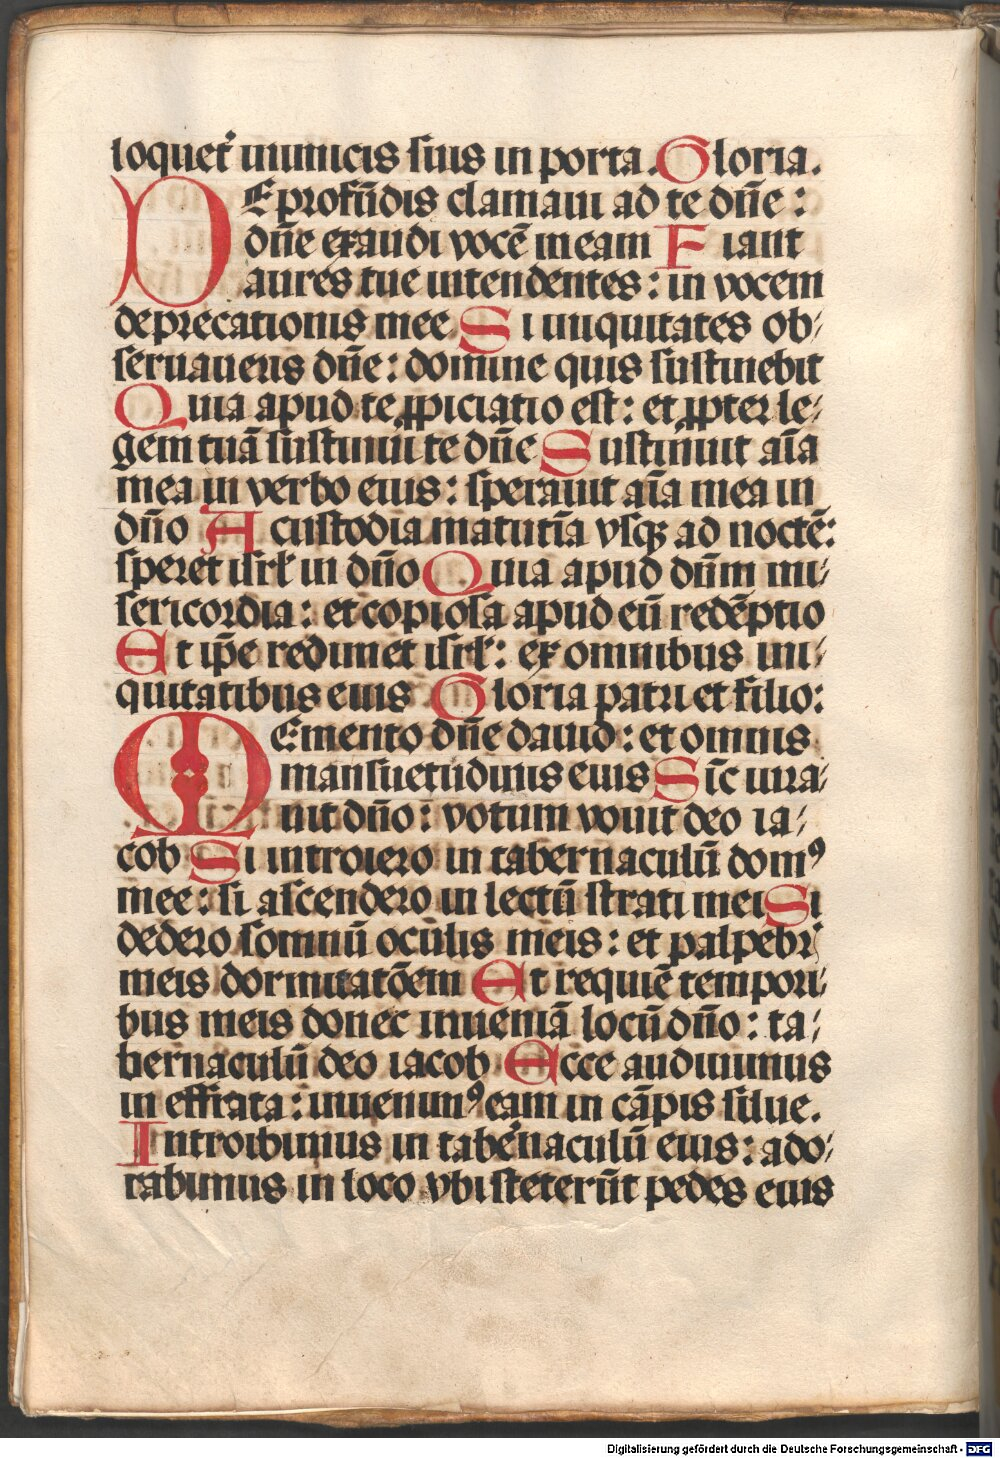 loquet᷑ inimicis suis in porta. Gloria.
DE profūdis clamaui ad te dn̄e :
dn̄e exaudi vocē meam Fiant
aures tue intendentes : in vocem
deprecationis mee Si iniquitates ob⸗
seruaueris dn̄e : domine quis sustinebit
Quia apud te ꝓpiciatio est : et ꝓpter le⸗
gem tuā sustinui te dn̄e Sustinuit aīa
mea in verbo eius : sperauit aīa mea in
dn̄o A custodia matutīa vsqꝫ ad noctē :
speret isrl̄ in dn̄o Quia apud dn̄m mi⸗
sericordia : et copiosa apud eū redēptio
Et ip̄e redimet isrl̄ : ex omnibus ini⸗
quitatibus eius Gloria patri et filio :
MEmento dn̄e dauid : et omnis
mansuetudinis eius Sic̄ iura⸗
uit dn̄o : votum vouit deo ia⸗
cob Si introiero in tabernaculū domꝰ
mee : si ascendero in lectū strati mei Si
dedero somnū oculis meis : et palpebrꝭ
meis dormitatōem Et requiē tempori⸗
bus meis donec inueniā locū dn̄o : ta⸗
bernaculū deo iacob Ecce audiuimus
in effrata : inuenimꝰ eam in cāpis silue.
Introibimus in tabe᷑naculū eius : ado⸗
rabimus in loco vbi steterūt pedes eius
Digitalisierung gefördert durch die Deutsche Forschungsgemeinschaft - DFG